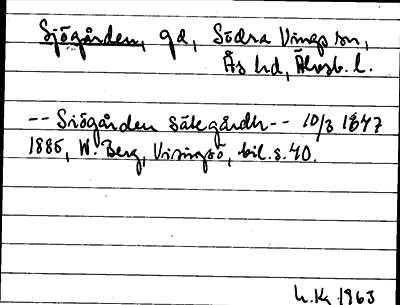 Sjögården, gd, Södra Vings sn,
Ås hd, Älvsb. l.
-- Siögården säte gårdh -- 10/3 1647
1885, W. Berg, Visingsö, bil. s. 40.
1963